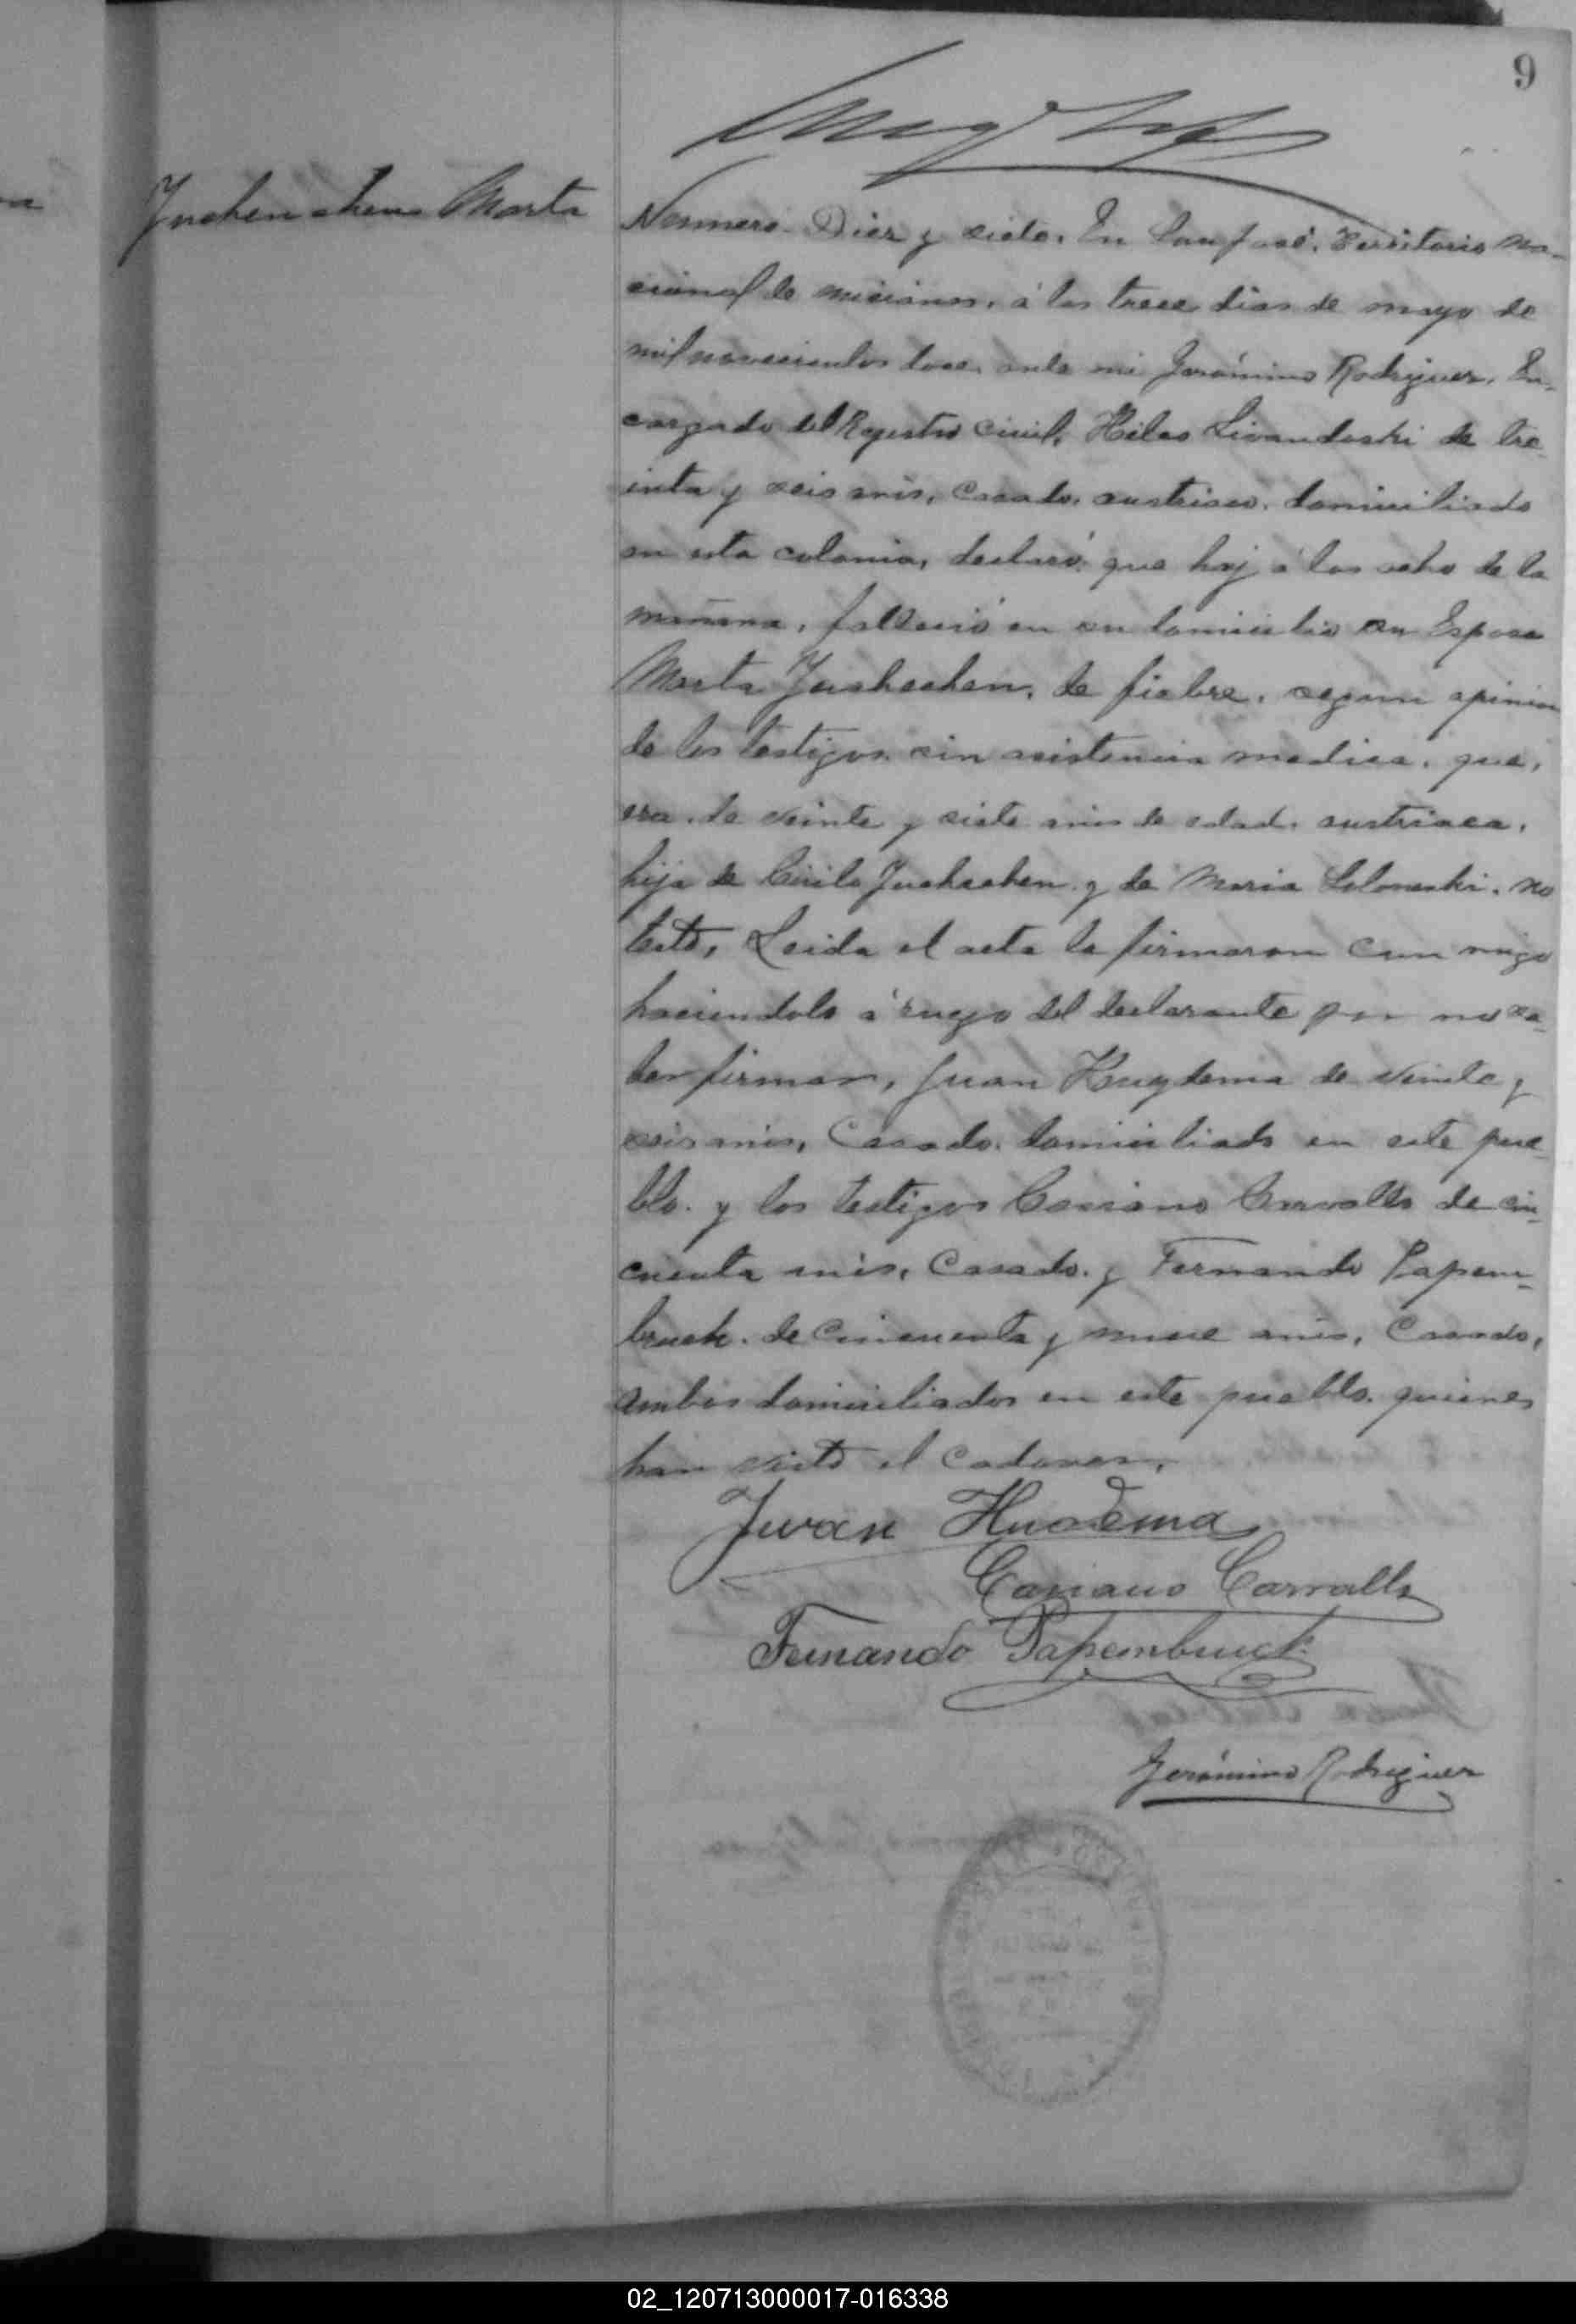 9
Marta
Número Diez y siete. En San José, Territorio Na-
cional de misiones, á los trece dias de mayo de
mil novecientos doce, ante mi Jerónimo Rodriguez, En-
cargado del Registro Civil, Livandoski de tre-
inta y seis años, Casado, austriaco, domiciliado
en esta colonia, declaró: que hoy á las ocho de la
mañana, falleció en su domicilio su Esposa
Marta de fiebre, segun opinion
de los testigos sin asistencia medica, que,
era de veinte y siete años de edad, austriaca,
hija de Cirilo y de Maria no
testó, Leida el acta la firmaron con migo
haciendolo á ruego del declarante por no sa-
ber firmar, Juan de veinte y
seis años, Casado, domiciliado en este pue-
blo. y los testigos Casiano Carvallo de cin-
cuenta años, Casado. y Fernando Papem-
bruck. de Cincuenta y nueve años, Casado,
ambos domiciliados en este pueblo. quienes
han visto el Cadaver.
Iwan Hnodema
Casiano Carvallo
Fernando Papembruck
Jerónimo Rodriguez
02_120713000017-016338